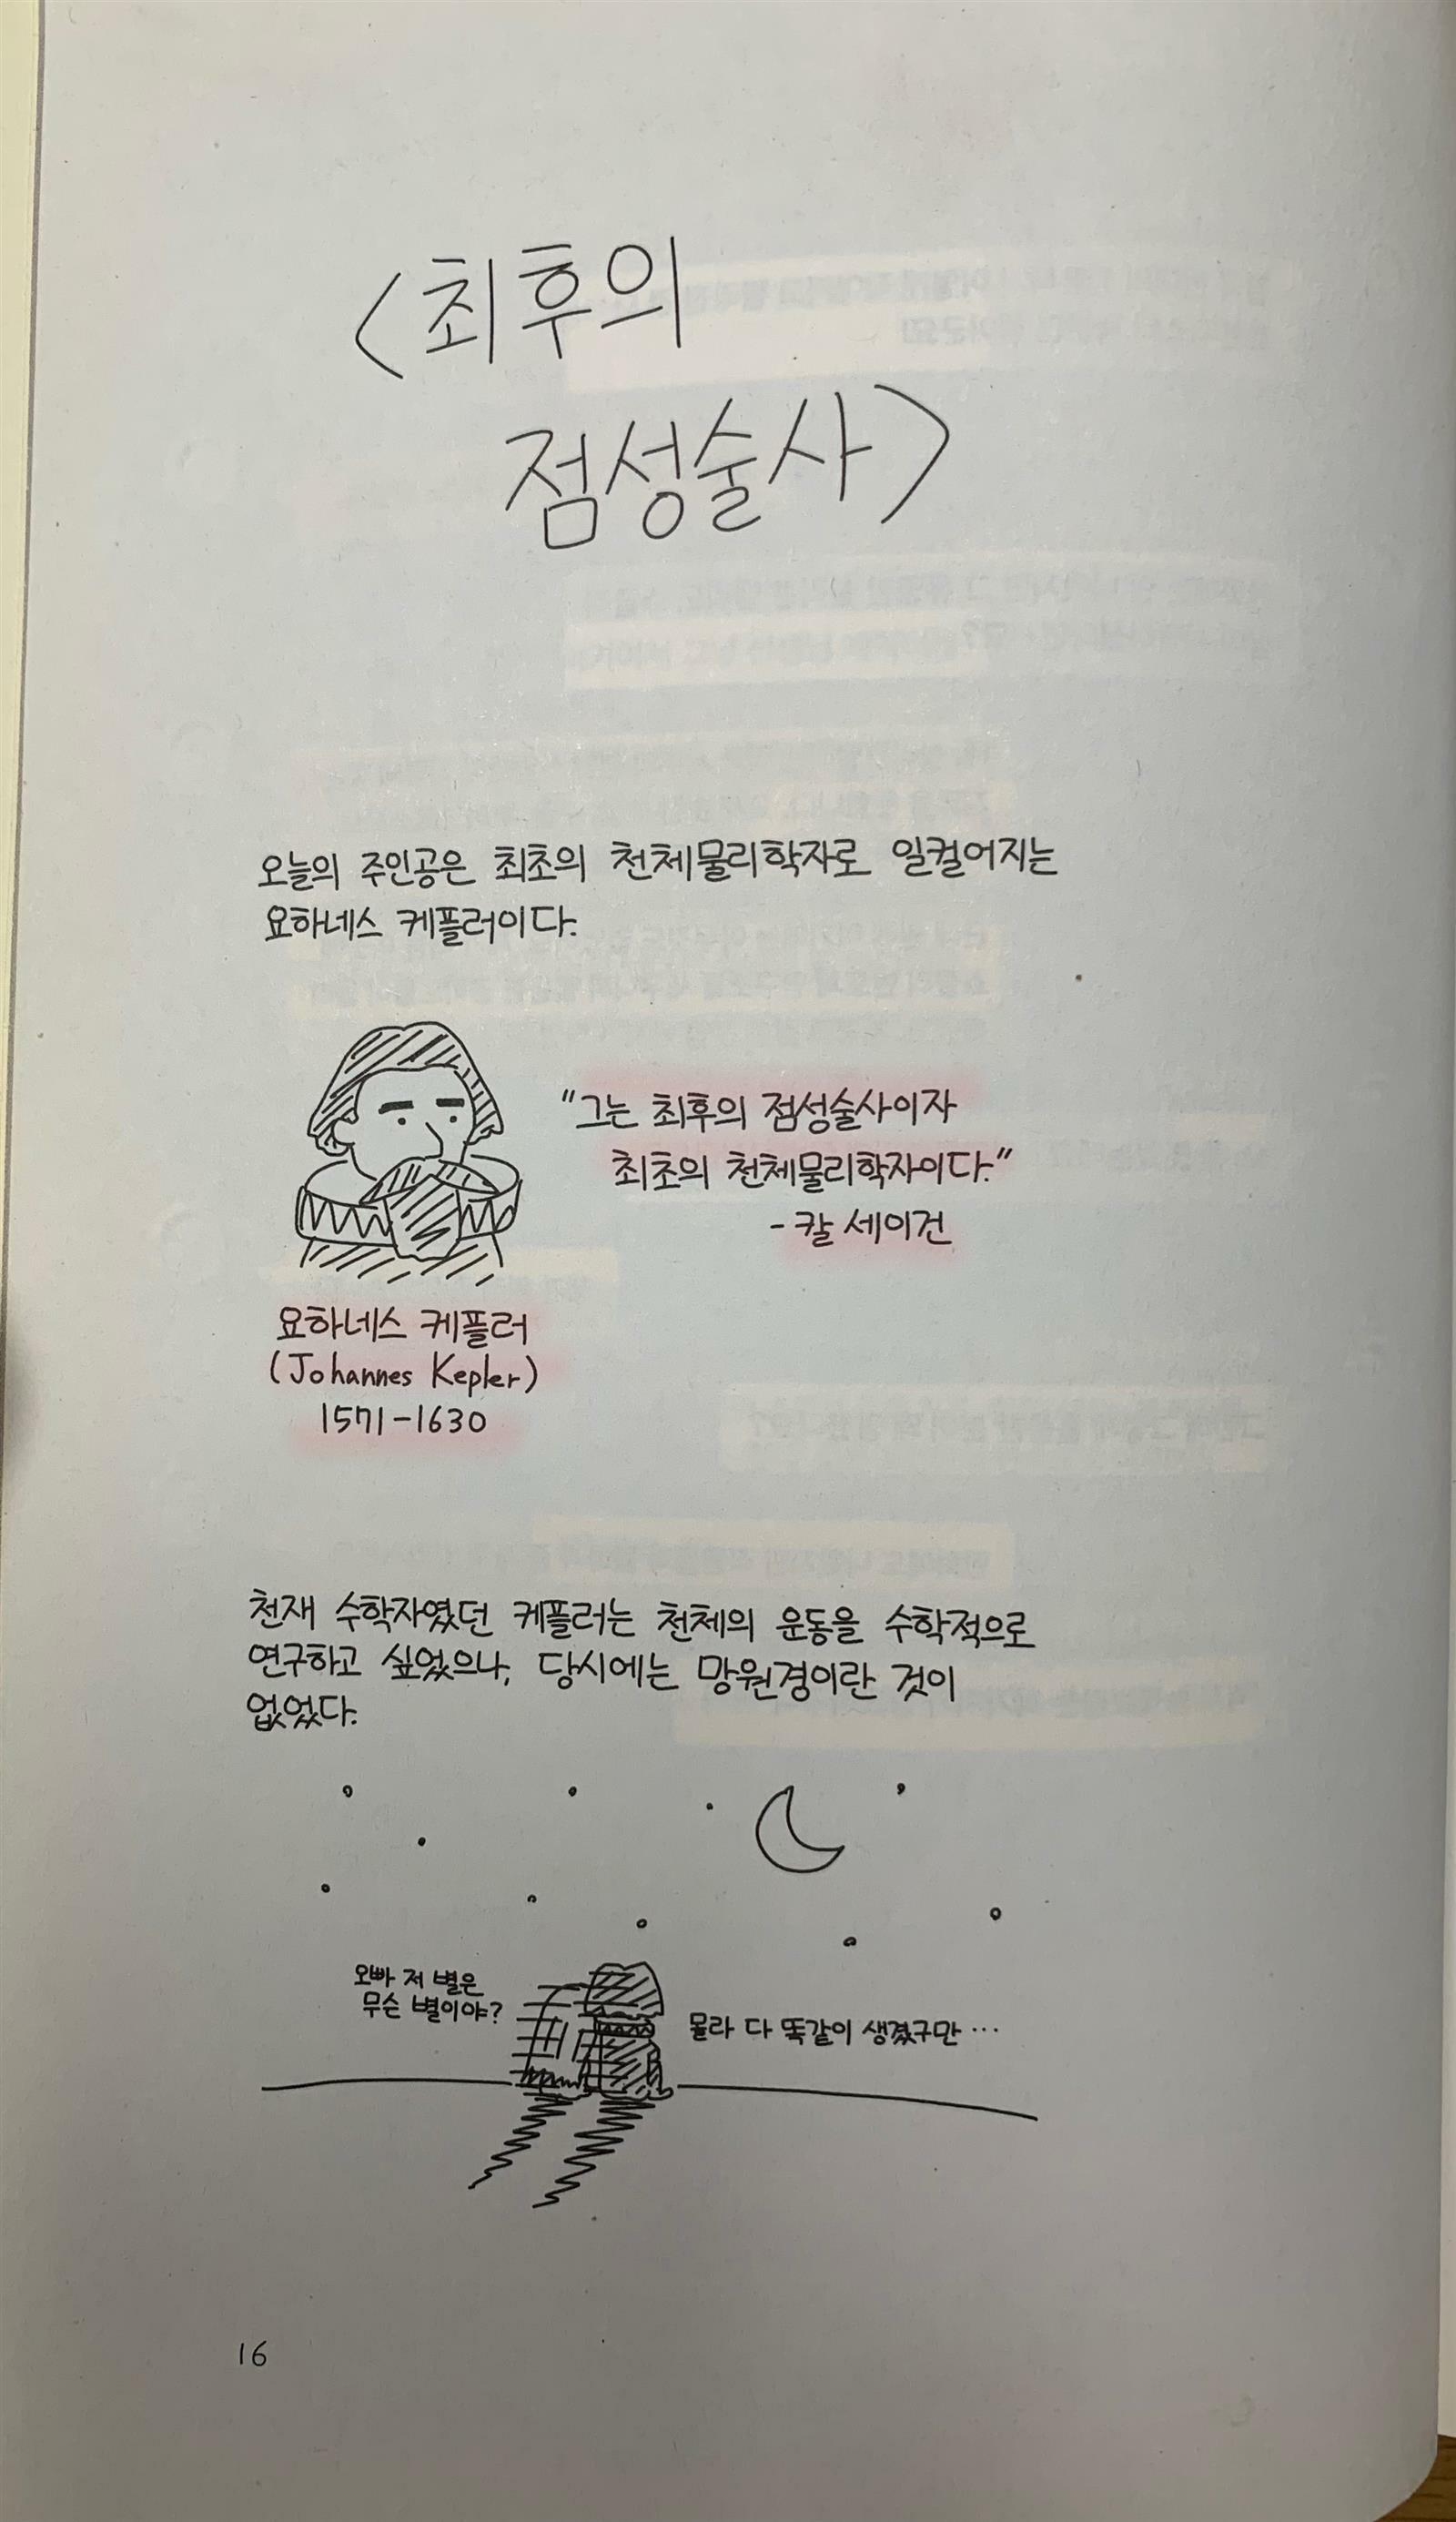 <최후의
점성술사>
오늘의 주인공은 최초의 천체물리학자로 일컬어지는
요하네스 케플러이다.
"그는 최후의 점성술사이자
최초의 천체물리학자이다."
- 칼 세이건
요하네스 케플러
(Johannes Kepler)
1571-1630
천재 수학자였던 케플러는 천체의 운동을 수학적으로
연구하고 싶었으나, 당시에는 망원경이란 것이
없었다.
오빠 저 별은
무슨 별이야?
몰라 다 똑같이 생겼구만…
16